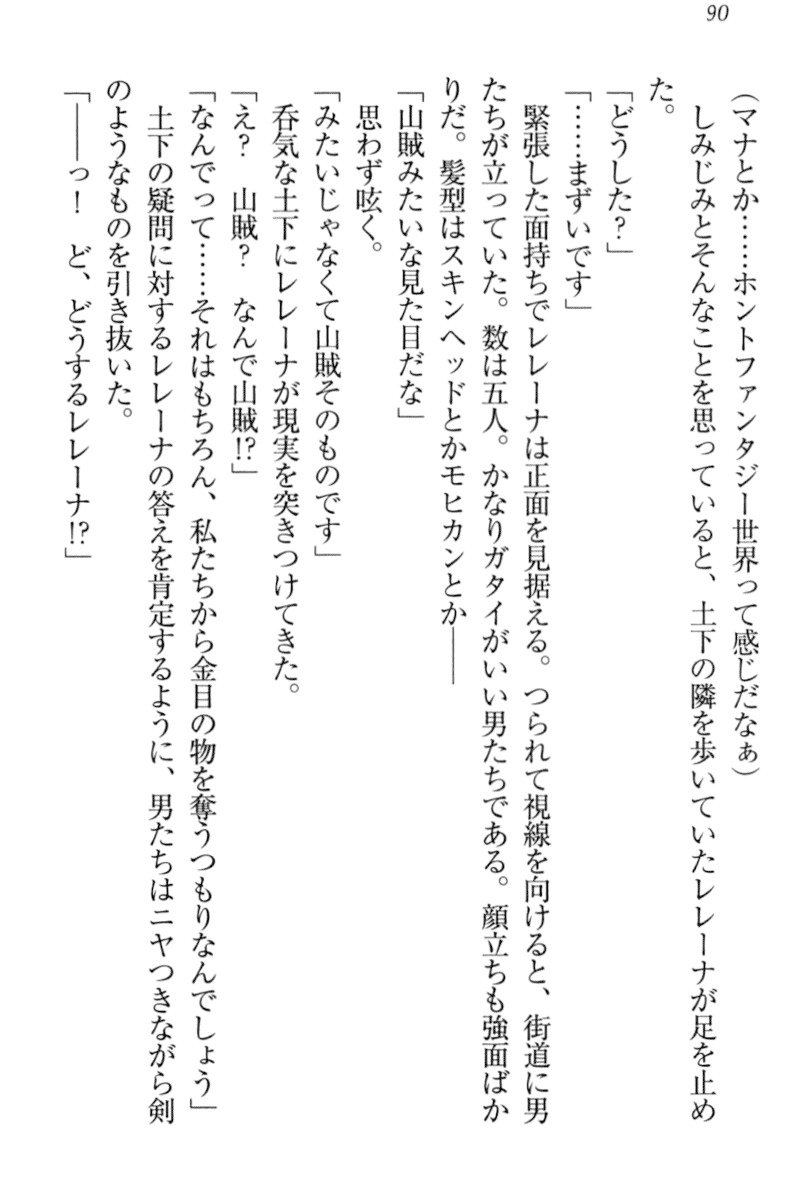 90
(マナとか……ホントファンタジー世界って感じだなぁ)
　しみじみとそんなことを思っていると、土下の隣を歩いていたレレーナが足を止め
た。
「どうした?」
「……まずいです」
　緊張した面持ちでレレーナは正面を見据える。つられて視線を向けると、街道に男
たちが立っていた。数は五人。かなりガタイがいい男たちである。顔立ちも強面ばか
りだ。髪型はスキンヘッドとかモヒカンとか――
「山賊みたいな見た目だな」
　思わず呟く。
「みたいじゃなくて山賊そのものです」
　呑気な土下にレレーナが現実を突きつけてきた。
「え?　山賊?　なんで山賊!?」
「なんでって……それはもちろん、私たちから金目の物を奪うつもりなんでしょう」
　土下の疑問に対するレレーナの答えを肯定するように、男たちはニヤつきながら剣
のようなものを引き抜いた。
「――っ!　ど、どうするレレーナ!?」